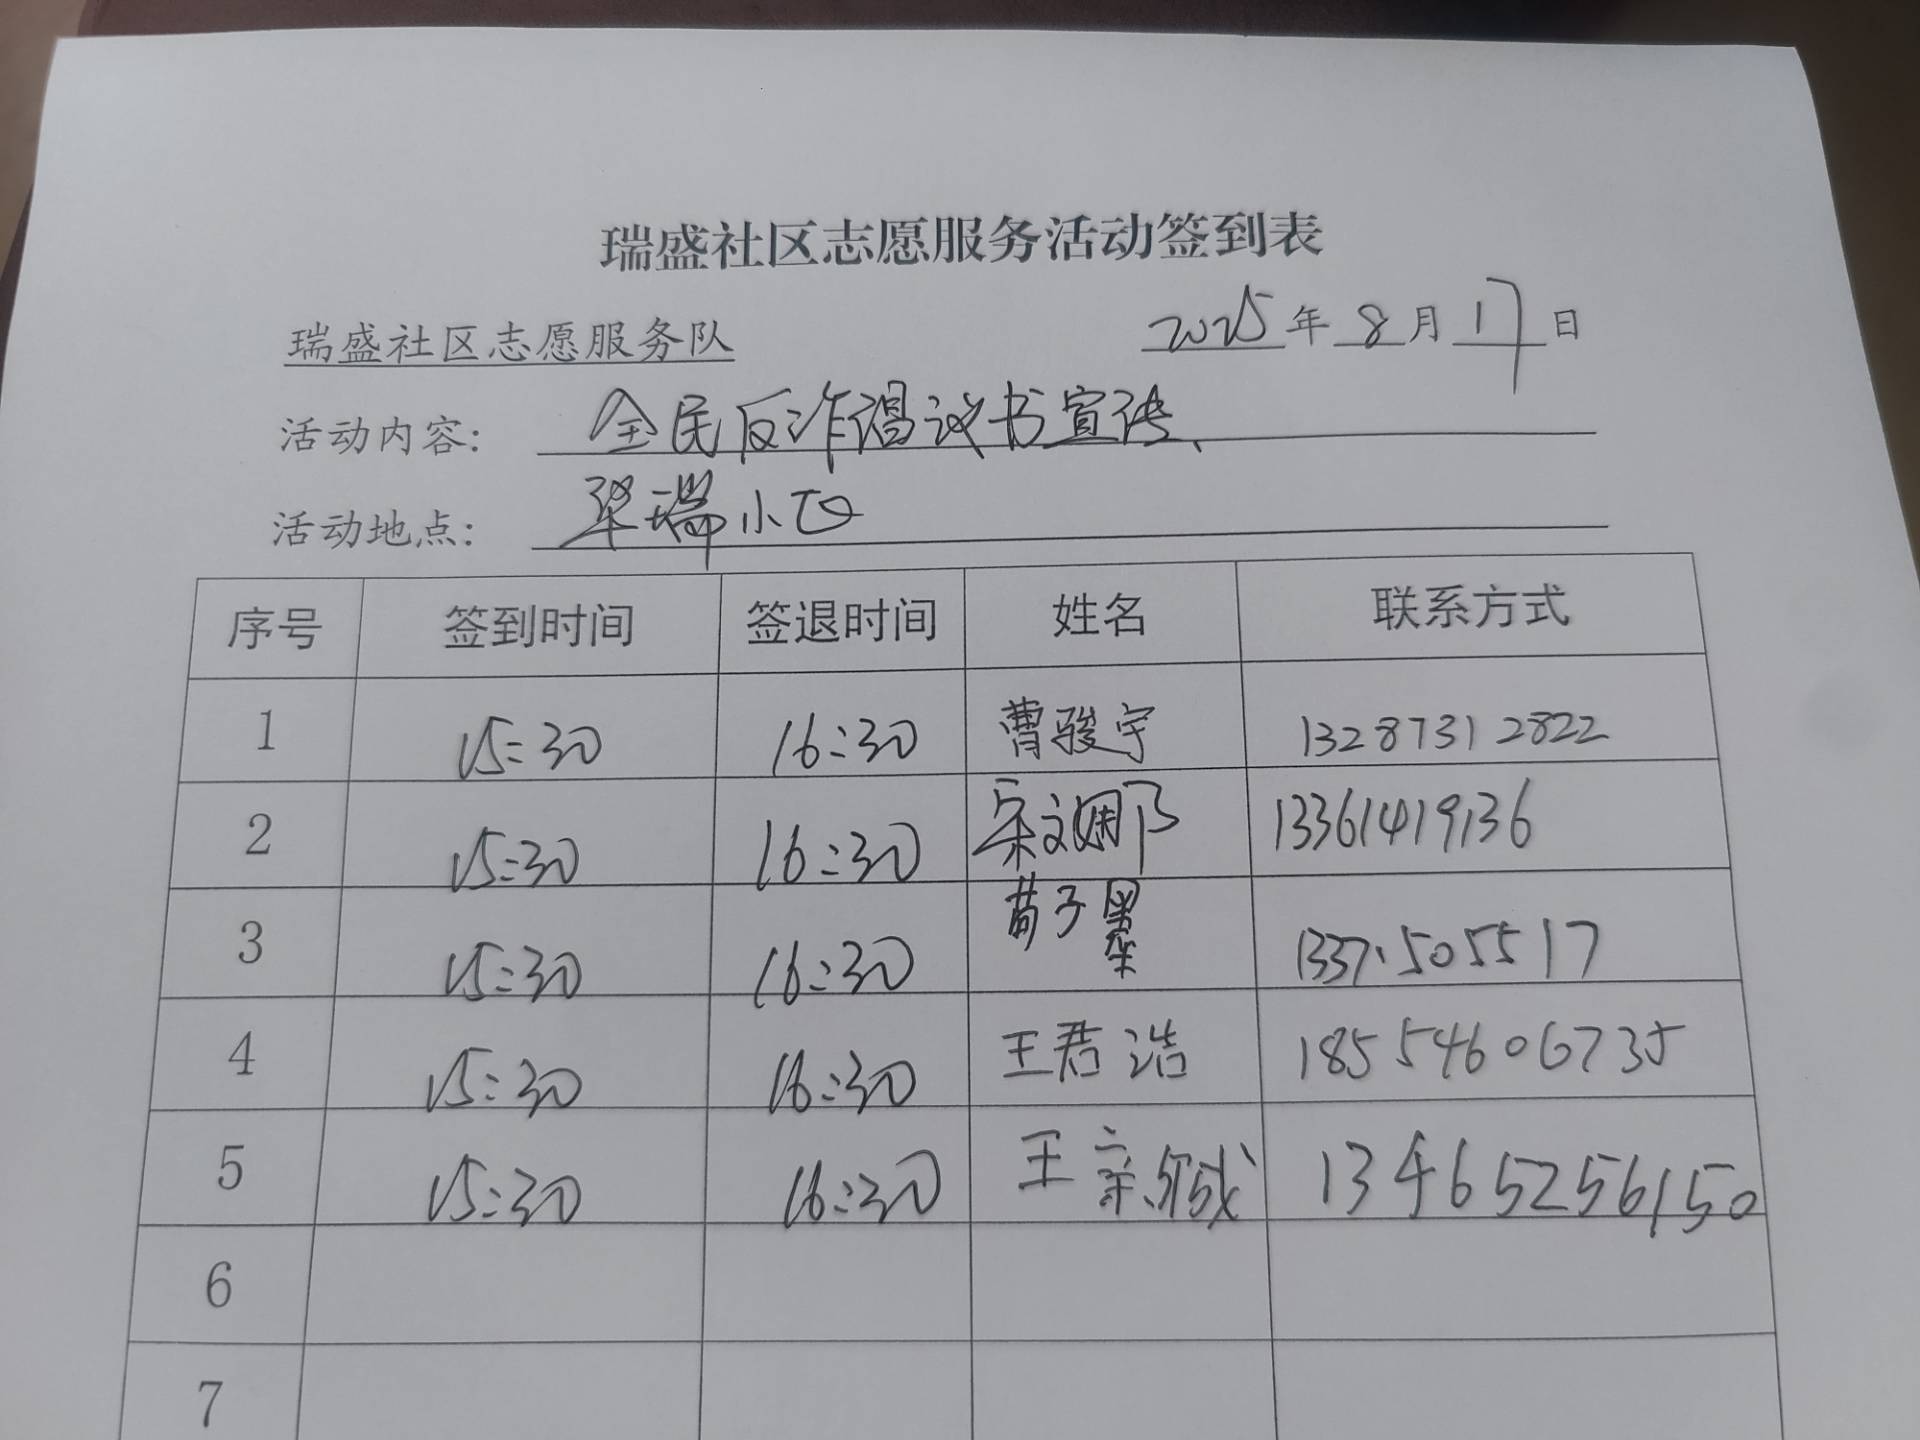 瑞盛社区志愿服务活动签到表
瑞盛社区志愿服务队 2025年8月17日
活动内容: 全民反诈倡议书宣传、
活动地点: 华瑞小区
序号 签到时间 签退时间 姓名 联系方式
1 15:30 16:30 曹骏宇 13287312822
2 15:30 16:30 宋文娴 13361419136
3 15:30 16:30 黄子墨 13371505517
4 15:30 16:30 王君浩 18554606735
5 15:30 16:30 王 13465256150
6
7